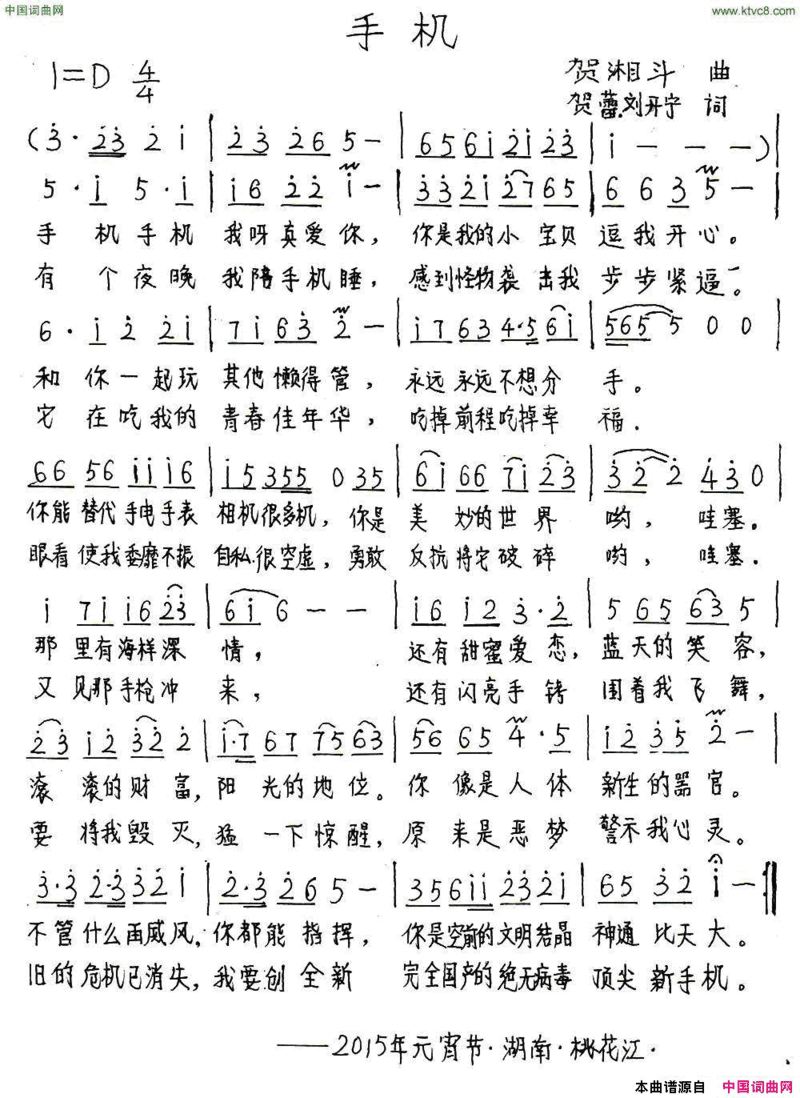 中国词曲网
www.ktvc8.com
手机
1=D 4/4
贺湘斗 曲
贺蕾.刘开宁 词
(3·23 2 1 | 23 26 5 — | 6561 2123 | 1 — — —)
5·1 5·1 | 16 22 1 — | 3321 2765 | 6 6 3 5 —
手 机手机 我呀真爱你, 你是我的小 宝贝 逗我开心。
有 个夜晚 我陪手机睡, 感到怪物袭 击我 步步紧逼。
6·1 2 21 | 71 63 2 — | 1763 4·5 61 | 565 5 0 0
和 你一起玩 其他懒得管, 永远永远不想分 手。
它 在吃我的 青春佳年华, 吃掉前程吃掉幸 福.
66 56 11 16 | 15355 0 35 | 61 66 71 23 | 32 2 430
你能 替代手电手表 相机很多机, 你是 美 妙的世 界 哟, 哇塞。
眼看 使我委靡不振 自私.很空虚, 勇敢 反抗将它破碎 哟, 哇塞.
1 71 16 23 | 61 6 — — | 16 12 3·2 | 5 65 63 5
那 里有海样深 情, 还有甜蜜爱恋, 蓝天的笑容,
又 见那手枪冲 来, 还有闪亮手铐 围着我飞舞,
23 12 32 2 | 1·7 67 75 63 | 56 65 4·5 | 12 35 2 —
滚 滚的财富, 阳 光的地位。 你 像是人体 新生的器官。
要 将我毁灭, 猛 一下惊醒, 原 来是恶梦 警示我心灵。
3·3 2·3 32 1 | 2·3 26 5 — | 35611 2321 | 65 32 1 —
不管什么雨威风, 你都能 指挥, 你是空前的文明结晶 神通 比天大。
旧的危机已消失, 我要创 全新 完全国产的绝无病毒 顶尖 新手机。
——2015年元宵节·湖南·桃花江·
本曲谱源自 中国词曲网